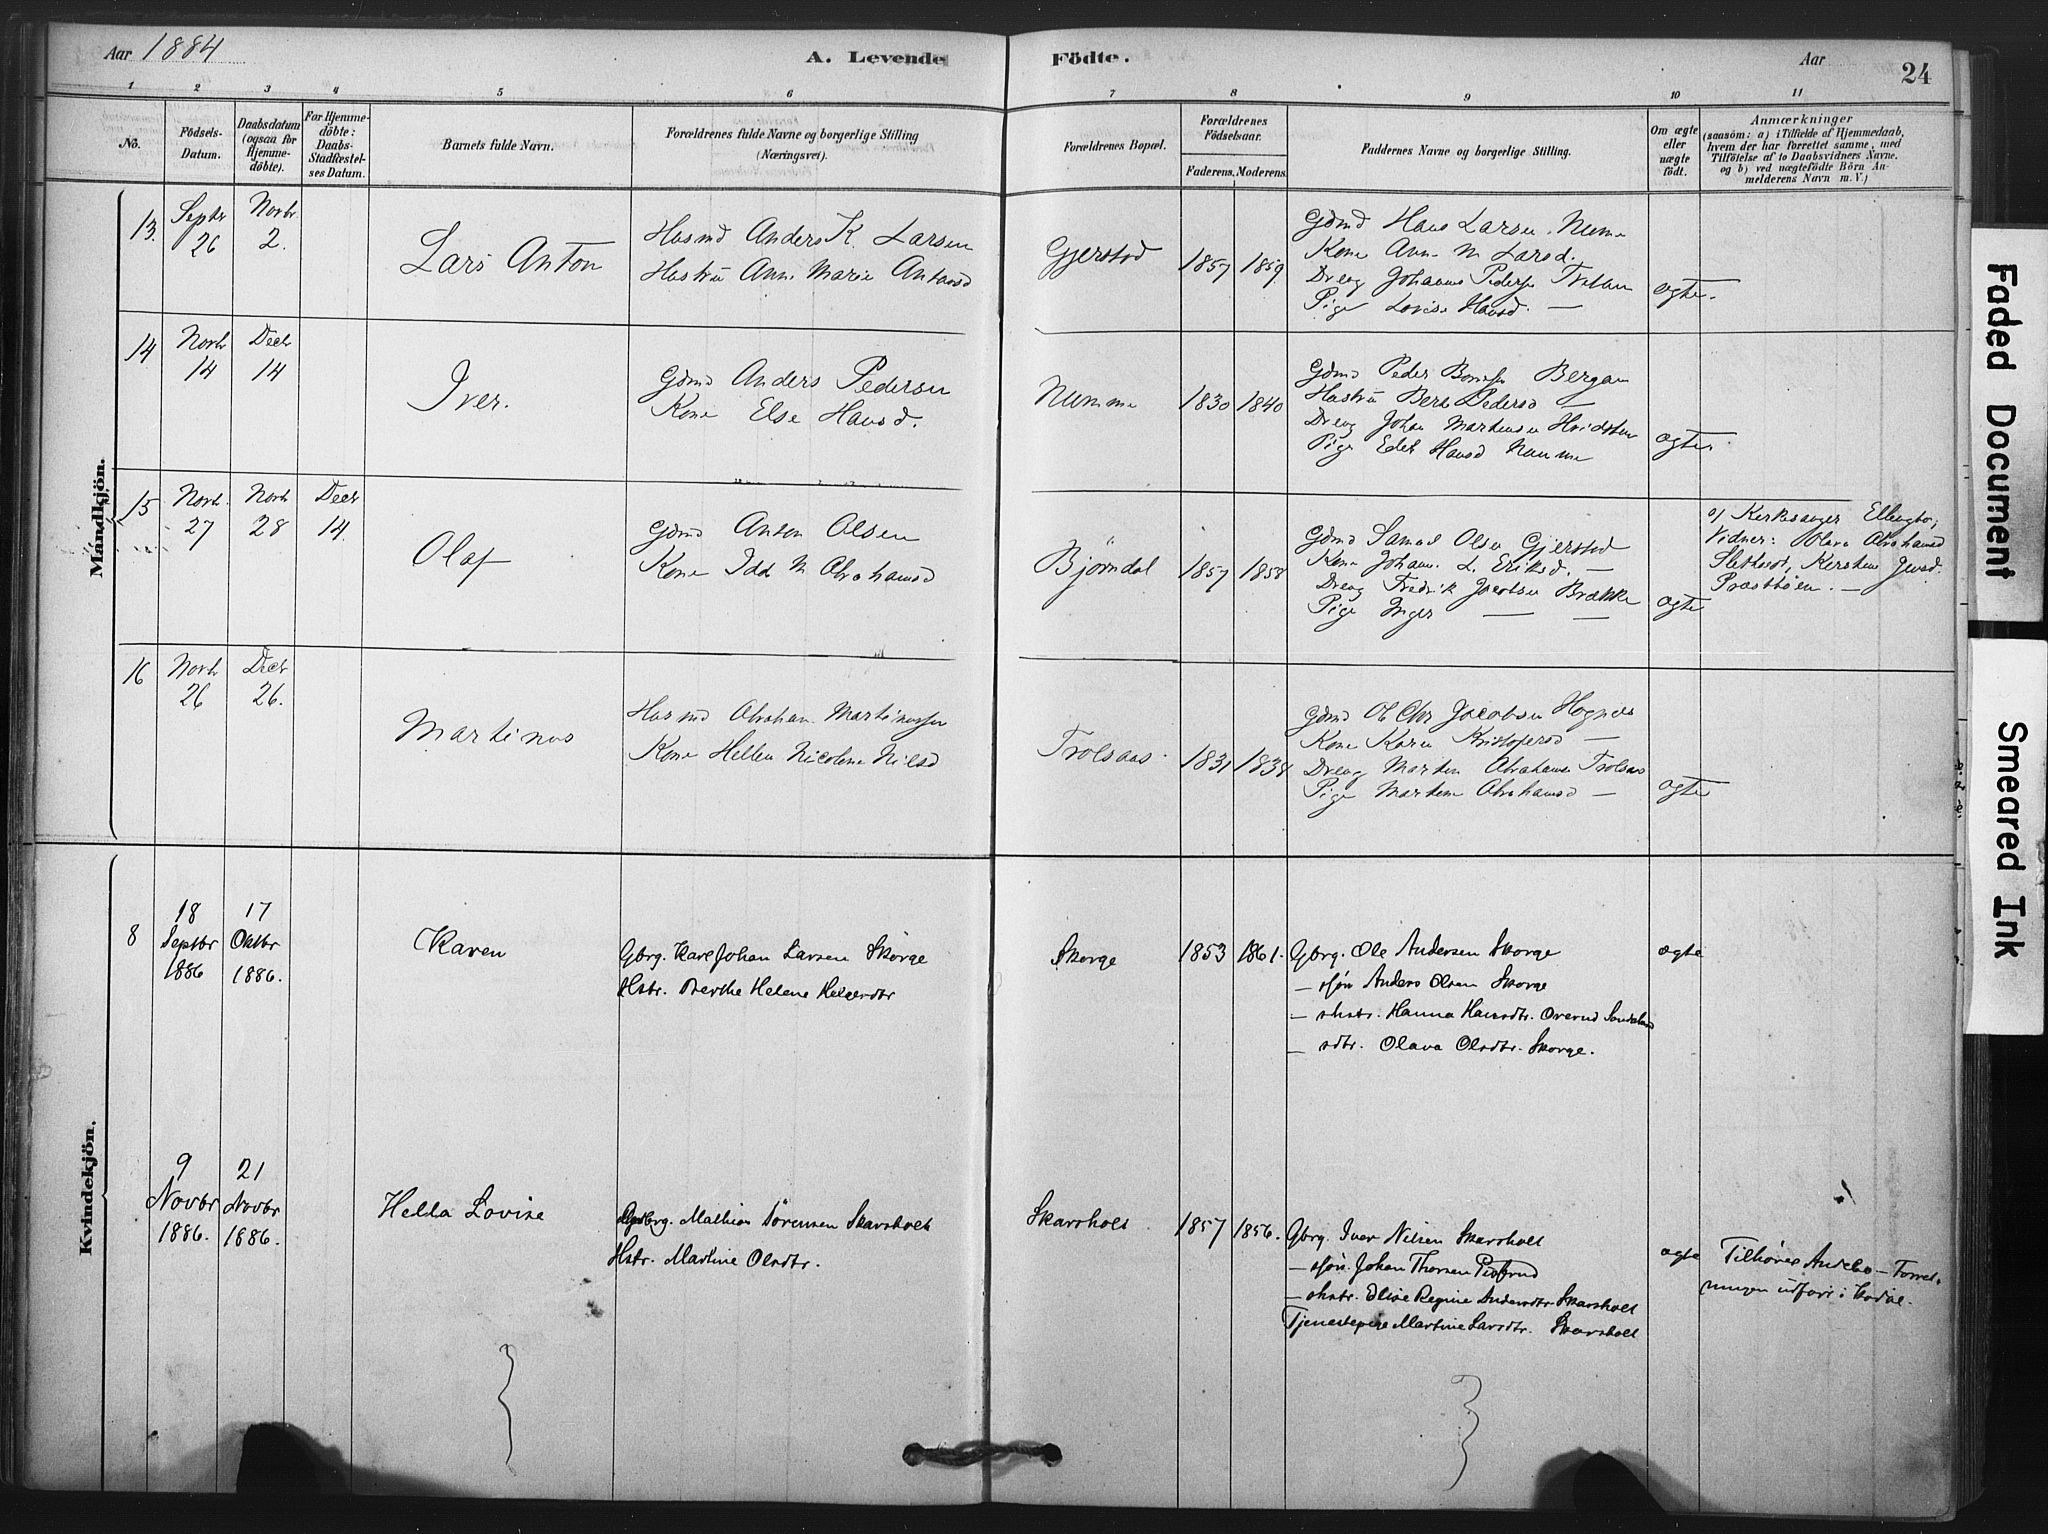 Aar 1884
A. Levende Födte.
Aar
24
1 2 3 4 5 6 7 8 9 10 11
No.
Födsels-Datum.
Daabsdatum (ogsaa for Hjemme-döbte).
For Hjemme-döbte: Daabs-Stadfæstel-ses Datum.
Barnets fulde Navn.
Forældrenes fulde Navne og borgerlige Stilling (Næringsvei).
Forældrenes Bopæl.
Forældrenes Födselsaar.
Faderens. Moderens.
Faddernes Navne og borgerlige Stilling.
Om ægte eller uægte födt.
Anmærkninger
(saasom: a) i Tilfælde af Hjemmedaab,
hvem der har forrettet samme, med
Tilföielse af to Daabsvidners Navne.
og b) ved uægtefödte Börn An-
melderens Navn m. V.)
Mandkjön.
13. Septbr 26 Novbr 2.
Lars Anton
Husmd Anders K. Larsen
Hustru Anne Marie Antonsd
Gjerstad 1857 1859
Gdmd Hans Larsen Numme
Kone Anne M Larsd.
Dreng Johannes Peders
Pige Lovise Hansd. —
ægte.
14 Novb 14 Decb 14
Iver.
Gdmd Anders Pedersen
Kone Else Hansd.
Numme 1830 1840
Gdmd Peder Bergan
Hustru Berte Pedersd —
Dreng Johan Martinsen
Pige Edel Hansd Numme
ægte.
15 Novb. 27 Novb 28 Decb 14.
Olaf
Gdmd Anton Olsen
Kone Ida M Abrahamsd
Bjørndal 1857 1858
Gdmd Samuel Olsen Gjerstad
Kone Johanne L. Eriksd. —
Dreng Fredrik Jacobsen Brække
Pige Inger — —
ægte
a) Kirkesanger
Vidner: Olava Abrahamsd
Kirsten
Præsttøen. —
16 Novb 26 Decb 26.
Martinus
Husmd Abraham Martinussen
Kone Hellen Nicoline Nilsd
Trolsaas. 1831 1838
Gdmd Ol Chr Jacobsen Hognes
Kone Karen Kristofersd —
Dreng Martin Abrahamsen Trolsaas
Pige Martine Abrahamsd —
ægte
Kvindekjön.
8 18 Septbr 1886 17 Oktbr 1886.
Karen
Gbrg. Karl Johan Larsen Skorge
Hstr. Berthe Helene Helgesdtr
Skorge 1853 1861.
Gbrg. Ole Andersen Skorge
— sjön Anders Olsen Skorge
— shstr. Hanna Hansdtr. Overud
— sdtr. Olava Olsdtr. Skorge.
ægte
9 Novbr 1886. 21 Novbr 1886.
Helda Lovise
Gbrg. Mathias Sörensen Skarsholt
Hstr. Martine Olsdtr.
Skarsholt 1857 1856.
Gbrg. Iver Nilsen Skarsholt
— sjön. Johan Thorsen
— shstr. Elise Regine Andersdtr. Skarsholt
Tjenestepige Martine Larsdtr. Skarsholt
ægte
Tilhører Andebo — Forret-
ningen udført i Kodal.
Faded Document
Smeared Ink